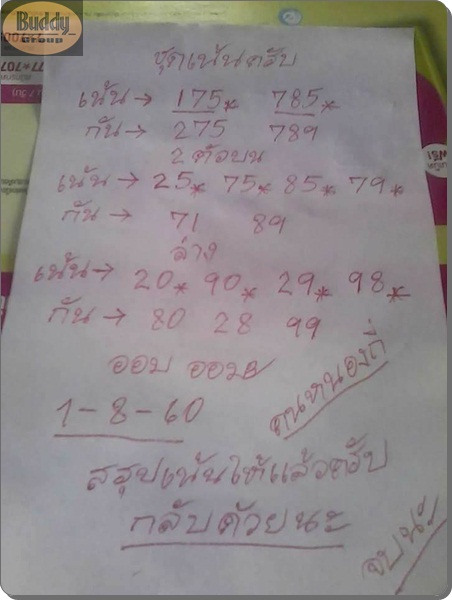 Buddy
Group
77*707
ชุดเน้นครับ
เน้น → 175* 785*
กัน → 275 789
2 ตัวบน
เน้น → 25* 75* 85* 79*
กัน → 71 89
ล่าง
เน้น → 20* 90* 29* 98*
กัน → 80 28 99
ออม ออมB
1-8-60
คนหนองกี่
สรุปเน้นให้แล้วครับ
กลับด้วยนะ
จบนะ